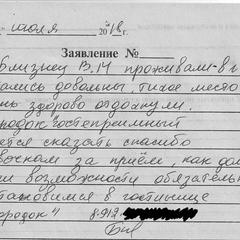 июля 2018 г.
Заявление №
Близнец В.М проживали в г
ались довольны, тихое место
нь здорово отдохнули.
родок гостеприимный
ется сказать спасибо
за приём, как дом
и возможности обязательн
тановимся в гостинице
ородок" 8-912